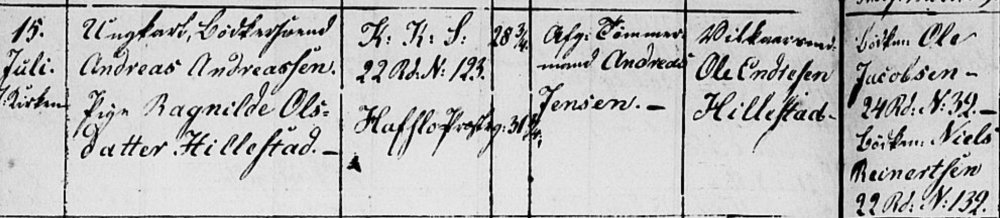 15. Juli. I Kirken
Ungkarl, Bödkersvend
Andreas Andreassen.
Pige Ragnilde Ols-
datter Hillestad. —
K: K: S:
22 Rd. N: 123.
Hafslo Prstg.
28 3/4.
31
Afg: Tömmer-
mand Andreas
Jensen. —
Ole Endresen
Hillestad-
Bödker: Ole
Jacobsen —
24 Rd: N: 39. —
Bödker: Niels
Reinertsen
22 Rd: N: 139.